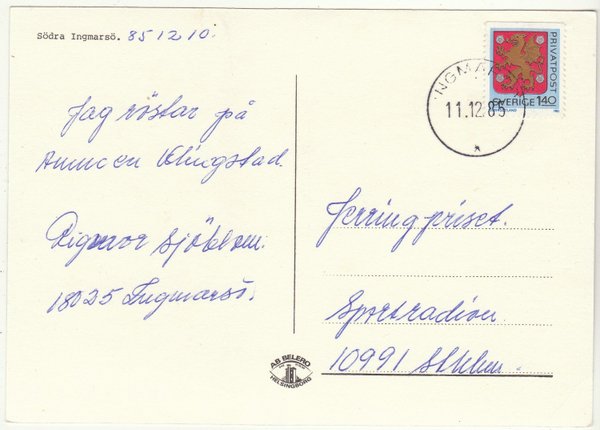 Södra Ingmarsö. 851210.
Jag röstar på
Ann Klingstad.
Sjöblom.
18025 Ingmarsö.
PRIVATPOST
SVERIGE 140
INGMAR
11.12.85
Jerringpriset.
Sportradion
10991 Sthlm.
AB BELERO
HELSINGBORG